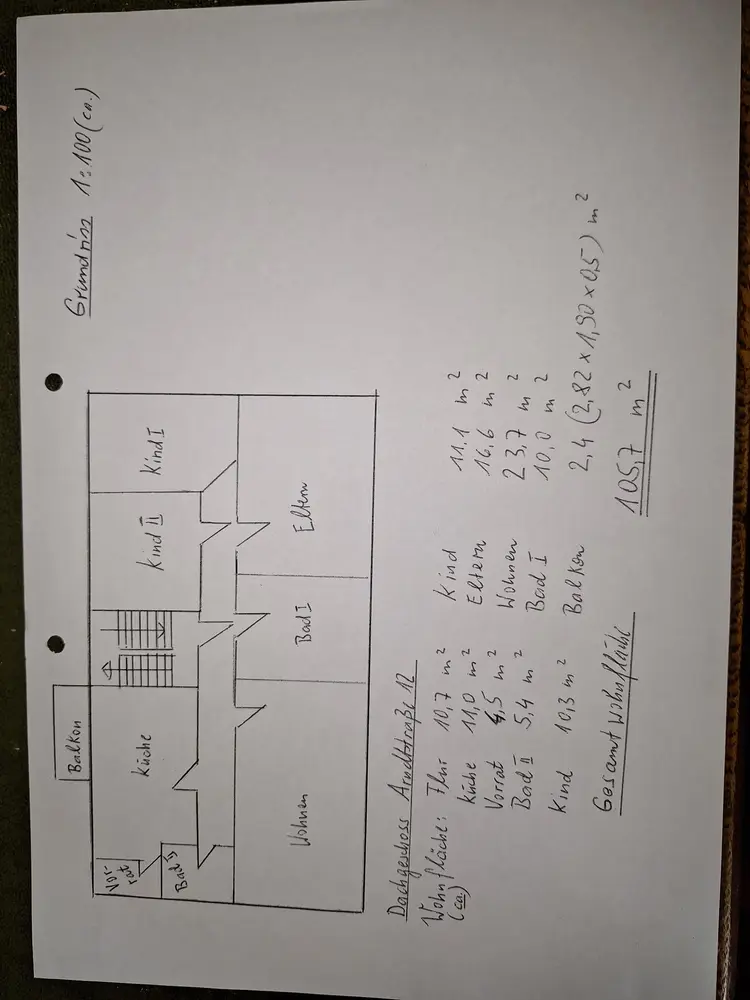 Balkon
Grundriss 1:100 (ca.)
Vor-
rat
Küche
Kind II
Kind I
Bad II
Wohnen
Bad I
Eltern
Dachgeschoss Arndtstraße 12
Wohnfläche: Flur 10,7 m² Kind 11.1 m²
(ca.) Küche 11,0 m² Eltern 16,6 m²
Vorrat 4,5 m² Wohnen 23,7 m²
Bad II 5,4 m² Bad I 10,0 m²
Kind 10,3 m² Balkon 2,4 (2,82 x 1,90 x 0,5) m²
Gesamtwohnfläche 105,7 m²